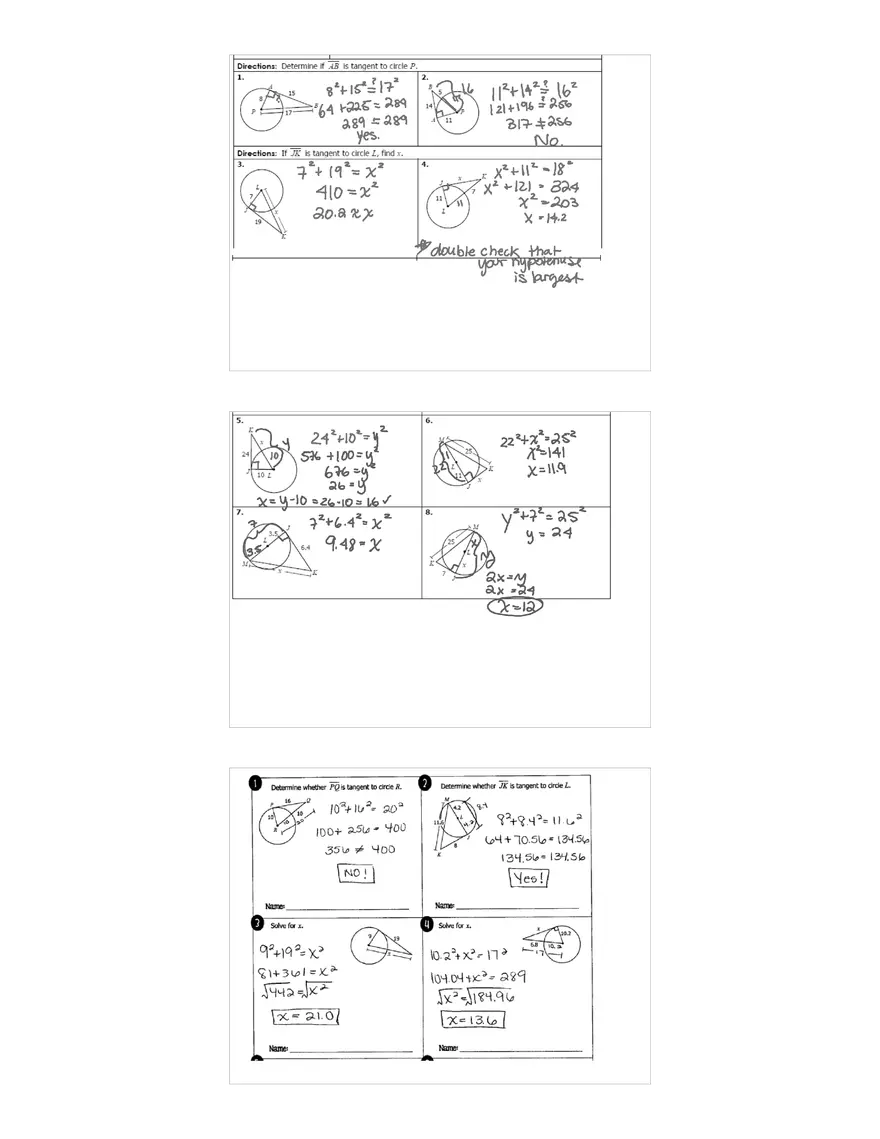 Directions: Determine if AB is tangent to circle P.
1.
A
8
15
P
17
B
8²+15² ≟ 17²
64+225 ≟ 289
289 = 289
Yes.
2.
B
5
16
14
P
A
11
11²+14² ≟ 16²
121+196 ≟ 256
317 ≠ 256
No.
Directions: If JK is tangent to circle L, find x.
3.
L
7
x
J
19
K
7²+19² = x²
410 = x²
20.2 ≈ x
4.
J
x
K
11
7
L
11
x²+11² = 18²
x²+121 = 324
x² = 203
x = 14.2
double check that
your hypotenuse
is largest
5.
K
x
y
24
10
J
10
L
24²+10² = y²
576+100 = y²
676 = y²
26 = y
x = y-10 = 26-10 = 16 ✓
6.
M
25
11
22
L
K
11
x
J
22²+x² = 25²
x² = 141
x = 11.9
7.
7
J
3.5
L
3.5
6.4
M
x
K
7²+6.4² = x²
9.48 = x
8.
M
25
x
y
L
K
x
7
J
y²+7² = 25²
y = 24
2x = y
2x = 24
x = 12
1
Determine whether PQ is tangent to circle R.
P
16
Q
10
10
R
10
20
10²+16² = 20²
100+256 = 400
356 ≠ 400
NO!
Name:
2
Determine whether JK is tangent to circle L.
M
4.2
8.4
11.6
L
4.2
J
8
K
8²+8.4² = 11.6²
64+70.56 = 134.56
134.56 = 134.56
Yes!
Name:
3
Solve for x.
9
19
x
9²+19² = x²
81+361 = x²
√442 = √x²
x = 21.0
Name:
4
Solve for x.
x
10.2
6.8
10.2
17
10.2²+x² = 17²
104.04+x² = 289
√x² = √184.96
x = 13.6
Name: